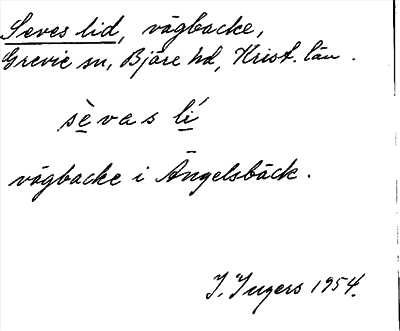 Seves lid, vägbacke,
Grevie sn, Bjäre hd, Krist. län.
sè̱vas lí̱
vägbacke i Ängelsbäck.
I. Ingers 1954.